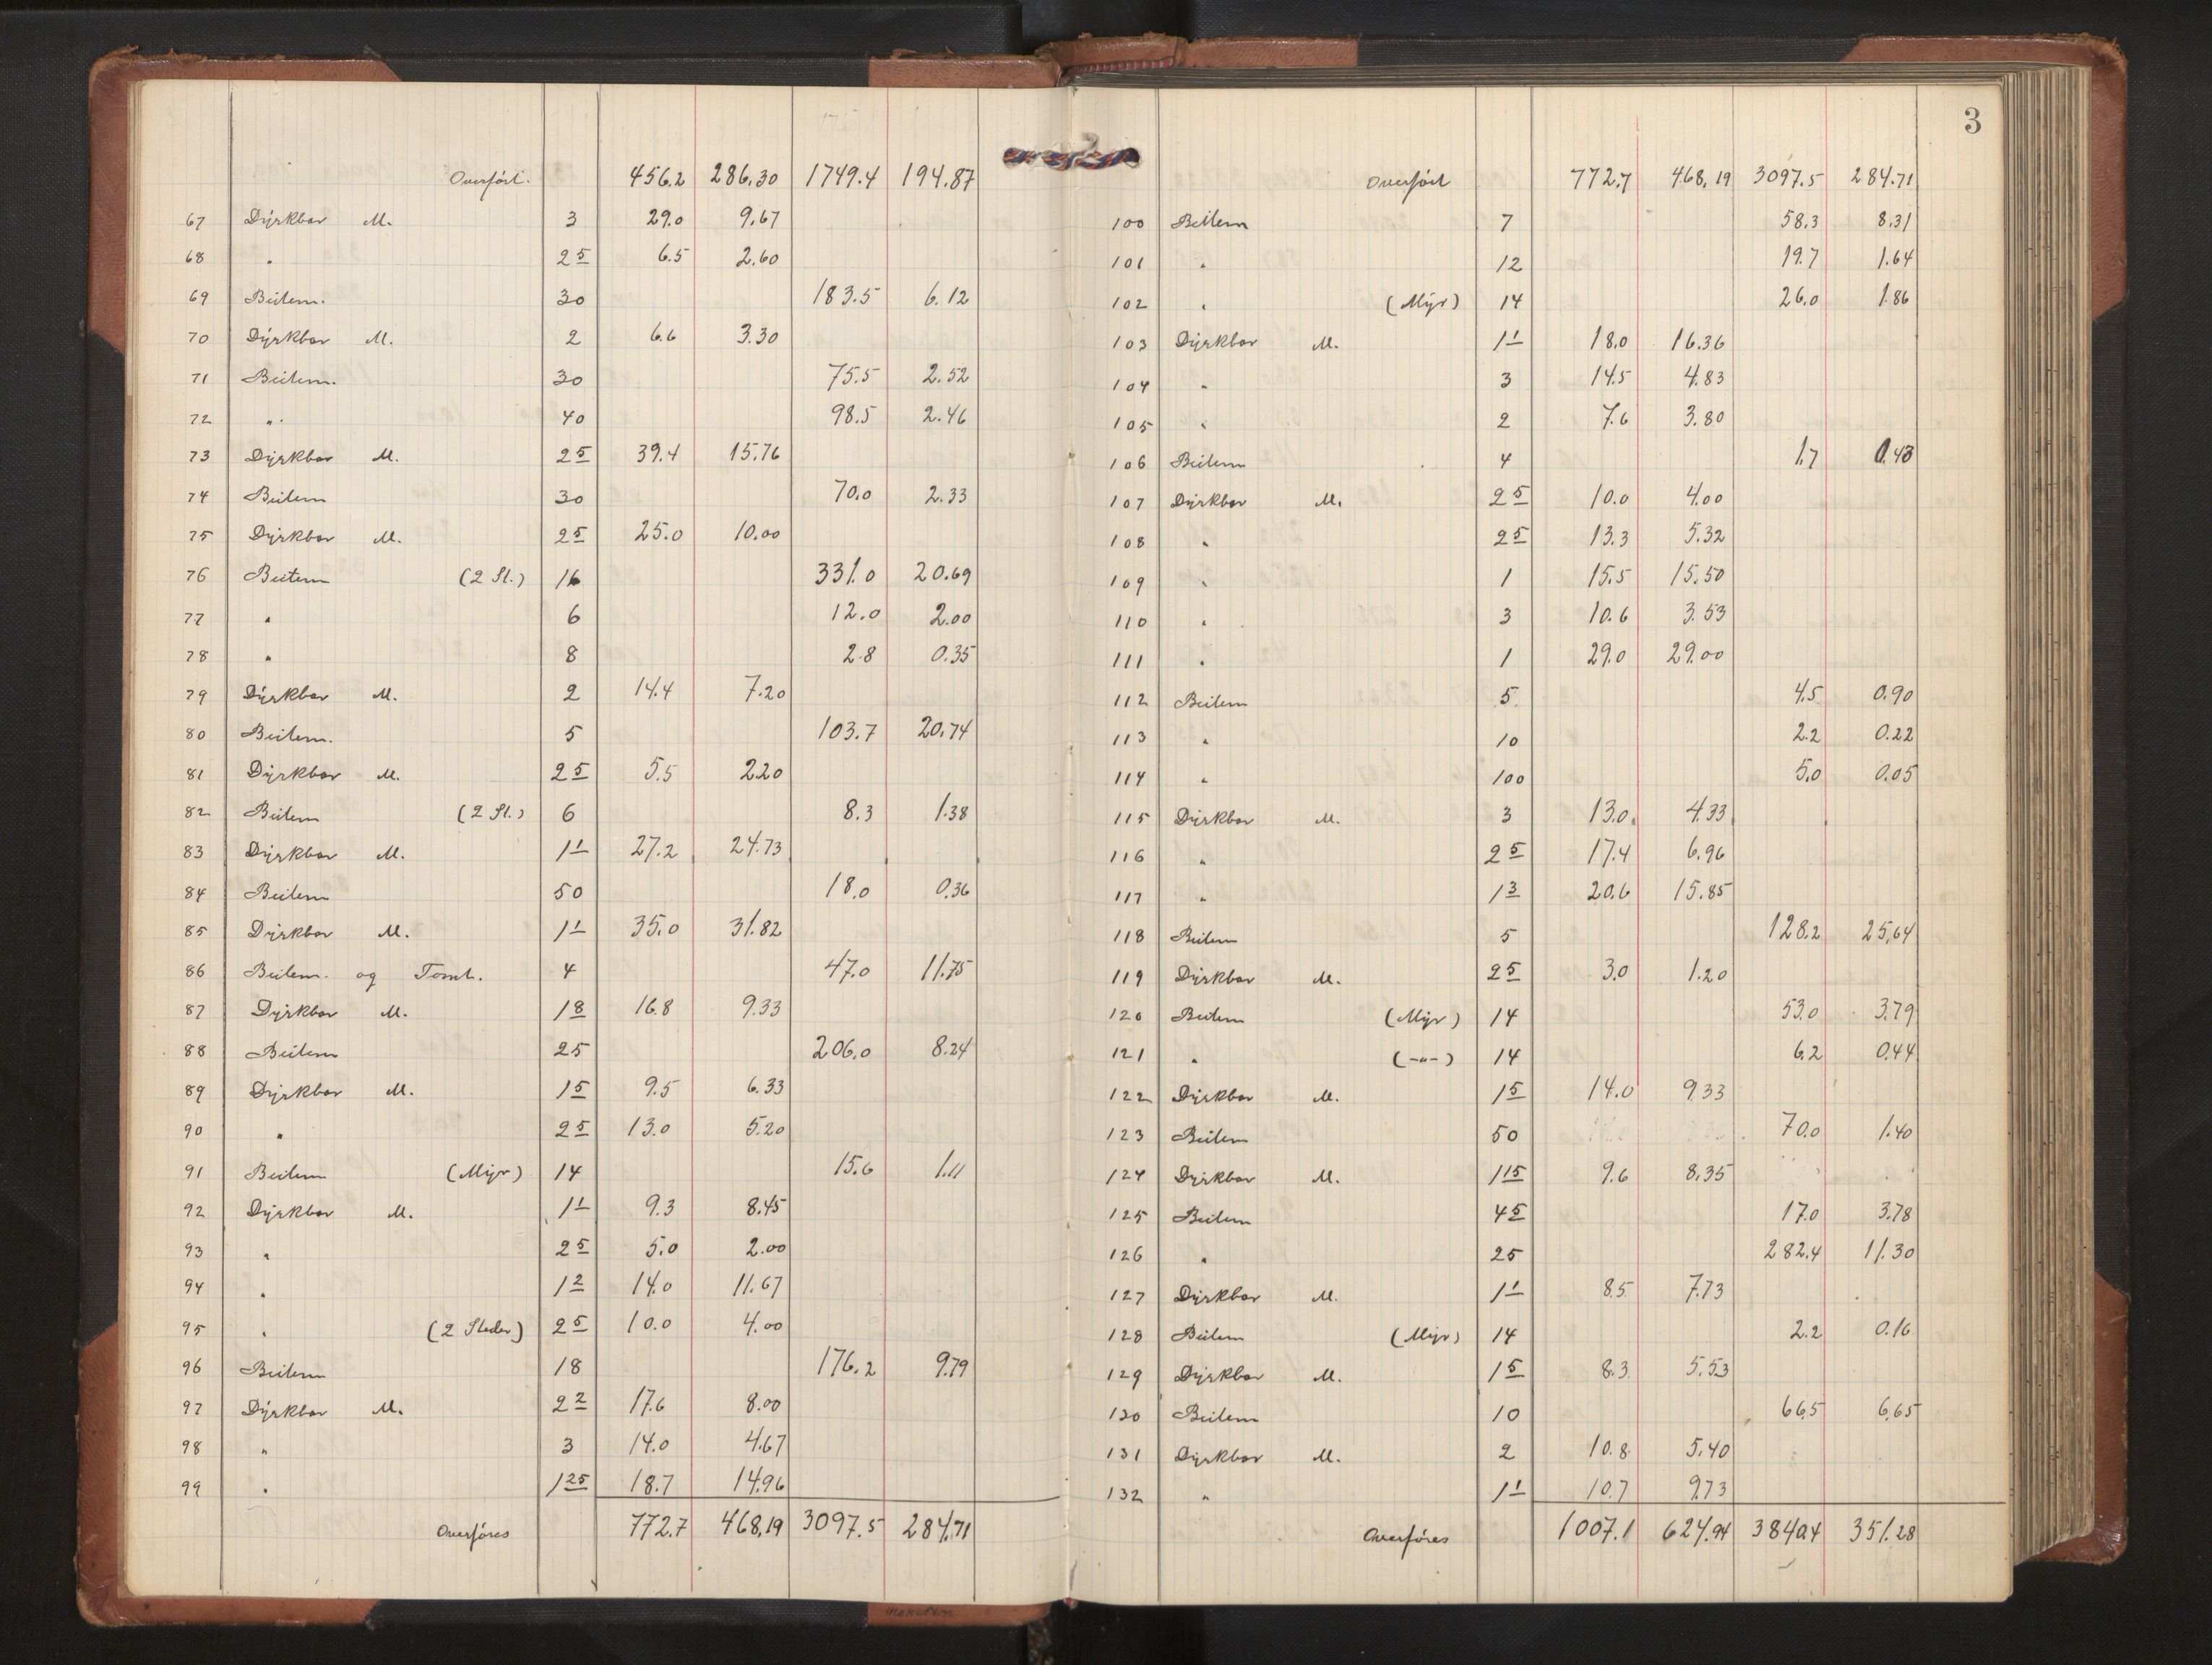 Overført. 456.2 286.30 1749.4 194.87
67 Dyrkbar M. 3 29.0 9.67
68 " 2 5 6.5 2.60
69 Beitem. 30 183.5 6.12
70 Dyrkbar M. 2 6.6 3.30
71 Beitem. 30 75.5 2.52
72 " 40 98.5 2.46
73 Dyrkbar M. 2 5 39.4 15.76
74 Beitem 30 70.0 2.33
75 Dyrkbar M. 2 5 25.0 10.00
76 Beitem (2 St.) 16 331.0 20.69
77 " 6 12.0 2.00
78 " 8 2.8 0.35
79 Dyrkbar M. 2 14.4 7.20
80 Beitem. 5 103.7 20.74
81 Dyrkbar M. 2 5 5.5 2.20
82 Beitem (2 St.) 6 8.3 1.38
83 Dyrkbar M. 1 1 27.2 24.73
84 Beitem 50 18.0 0.36
85 Dyrkbar M. 1 1 35.0 31.82
86 Beitem. og Tomt. 4 47.0 11.75
87 Dyrkbar M. 1 8 16.8 9.33
88 Beitem 25 206.0 8.24
89 Dyrkbar M. 1 5 9.5 6.33
90 " 2 5 13.0 5.20
91 Beitem (Myr) 14 15.6 1.11
92 Dyrkbar M. 1 1 9.3 8.45
93 " 2 5 5.0 2.00
94 " 1 2 14.0 11.67
95 " (2 Steder) 2 5 10.0 4.00
96 Beitem 18 176.2 9.79
97 Dyrkbar M. 2 2 17.6 8.00
98 " 3 14.0 4.67
99 " 1 25 18.7 14.96
Overføres 772.7 468.19 3097.5 284.71
3
Overført 772.7 468.19 3097.5 284.71
100 Beitem 7 58.3 8.31
101 " 12 19.7 1.64
102 " (Myr) 14 26.0 1.86
103 Dyrkbar M. 1 1 18.0 16.36
104 " 3 14.5 4.83
105 " 2 7.6 3.80
106 Beitem 4 1.7 0.43
107 Dyrkbar M. 2 5 10.0 4.00
108 " 2 5 13.3 5.32
109 " 1 15.5 15.50
110 " 3 10.6 3.53
111 " 1 29.0 29.00
112 Beitem 5 4.5 0.90
113 " 10 2.2 0.22
114 " 100 5.0 0.05
115 Dyrkbar M. 3 13.0 4.33
116 " 2 5 17.4 6.96
117 " 1 3 20.6 15.85
118 Beitem 5 128.2 25.64
119 Dyrkbar M. 2 5 3.0 1.20
120 Beitem (Myr) 14 53.0 3.79
121 " (-"-) 14 6.2 0.44
122 Dyrkbar M. 1 5 14.0 9.33
123 Beitem 50 70.0 1.40
124 Dyrkbar M. 1 15 9.6 8.35
125 Beitem 4 5 17.0 3.78
126 " 25 282.4 11.30
127 Dyrkbar M. 1 1 8.5 7.73
128 Beitem (Myr) 14 2.2 0.16
129 Dyrkbar M. 1 5 8.3 5.53
130 Beitem 10 66.5 6.65
131 Dyrkbar M. 2 10.8 5.40
132 " 1 1 10.7 9.73
Overføres 1007.1 624.94 3840.4 351.28